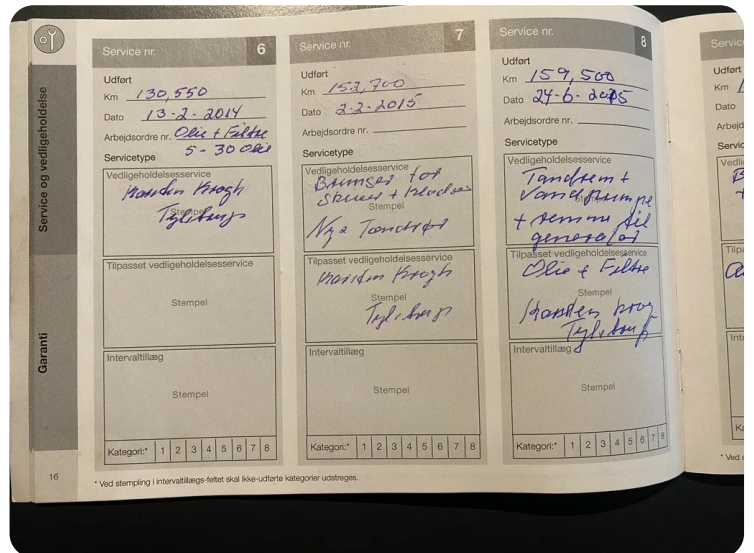 Service og vedligeholdelse
Garanti
Service nr. 6
Udført
Km 130,550
Dato 13-2-2014
Arbejdsordre nr. Olie + Filtre
5-30 Olie
Servicetype
Vedligeholdelsesservice
Karsten Krogh
Stempel
Tylstrup
Tilpasset vedligeholdelsesservice
Stempel
Intervaltillæg
Stempel
Kategori:* 1 2 3 4 5 6 7 8
Service nr. 7
Udført
Km 152,700
Dato 2-2-2015
Arbejdsordre nr.
Servicetype
Vedligeholdelsesservice
Bremser for
Skiver + Klodser
Stempel
Nye Tændrør
Tilpasset vedligeholdelsesservice
Karsten Krogh
Stempel
Tylstrup
Intervaltillæg
Stempel
Kategori:* 1 2 3 4 5 6 7 8
Service nr. 8
Udført
Km 159,500
Dato 24-6-2015
Arbejdsordre nr.
Servicetype
Vedligeholdelsesservice
Tandrem +
Vandpumpe
Stempel
+ remme til
generator
Tilpasset vedligeholdelsesservice
Olie + Filtre
Stempel
Karsten Krog
Tylstrup
Intervaltillæg
Stempel
Kategori:* 1 2 3 4 5 6 7 8
16
* Ved stempling i intervaltillægs-feltet skal ikke-udførte kategorier udstreges.
Udført
Km
Dato